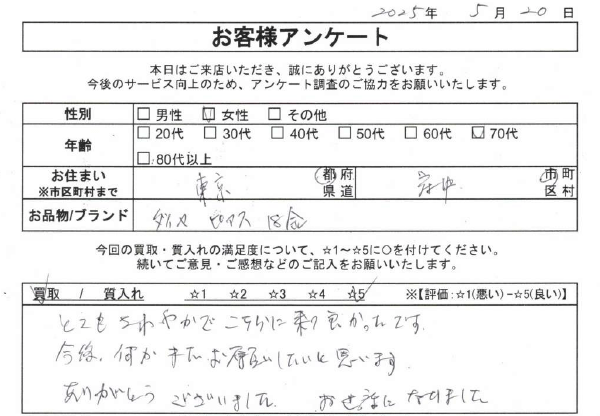 2025年 5月 20日
お客様アンケート
本日はご来店いただき、誠にありがとうございます。
今後のサービス向上のため、アンケート調査のご協力をお願いいたします。
性別 □男性 ☑女性 □その他
年齢 □20代 □30代 □40代 □50代 □60代 ☑70代
□80代以上
お住まい ※市区町村まで 東京 都府県道 府中 市町区村
お品物/ブランド ダイヤ ピアス 18金
今回の買取・質入れの満足度について、☆1～☆5に○を付けてください。
続いてご意見・ご感想などのご記入をお願いいたします。
買取 / 質入れ ☆1 ☆2 ☆3 ☆4 ☆5 ※【評価:☆1(悪い)−☆5(良い)】
とても さわやかで こちらに 来て 良かったです。
今後、何か またお願いしたいと思います。
ありがとう ございました。 お世話に なりました